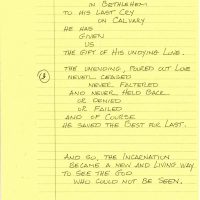 IN BETHLEHEM
TO HIS LAST CRY
ON CALVARY
HE HAS
GIVEN
US
THE GIFT OF HIS UNDYING LOVE.
③ THE UNENDING, POURED OUT LOVE
NEVER CEASED
NEVER FALTERED
AND NEVER HELD BACK
OR DENIED
OR FAILED
AND OF COURSE
HE SAVED THE BEST FOR LAST.
AND SO, THE INCARNATION
BECAME A NEW AND LIVING WAY
TO SEE THE GOD
WHO COULD NOT BE SEEN.